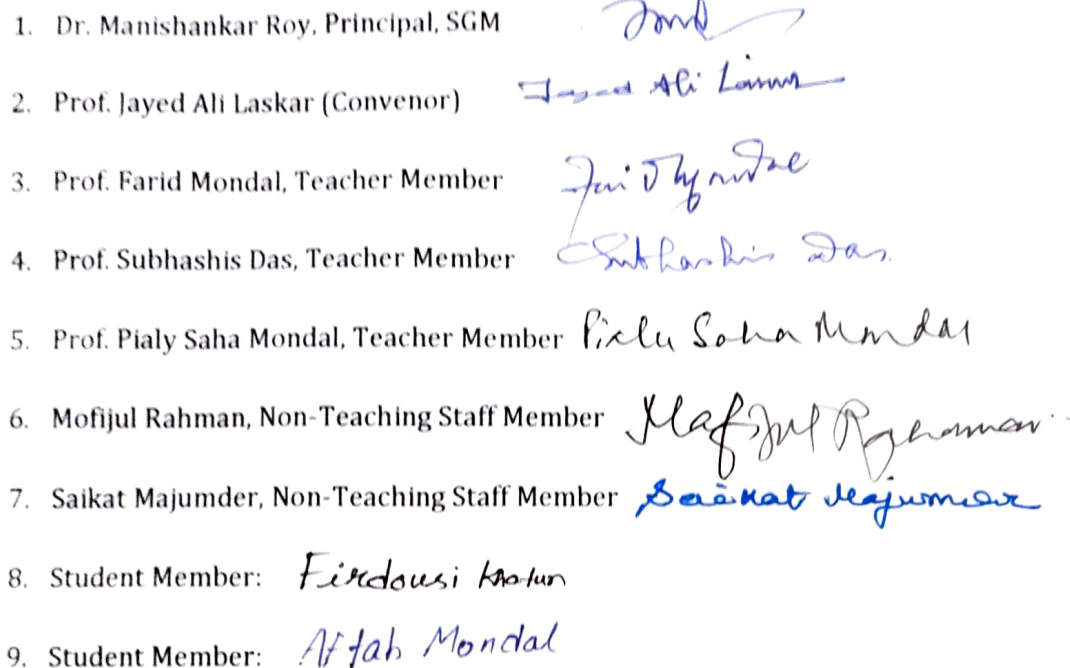 1. Dr. Manishankar Roy, Principal, SGM
2. Prof. Jayed Ali Laskar (Convenor) Jayed Ali
3. Prof. Farid Mondal, Teacher Member
4. Prof. Subhashis Das, Teacher Member Subhashis Das.
5. Prof. Pialy Saha Mondal, Teacher Member Saha Mondal
6. Mofijul Rahman, Non-Teaching Staff Member Mafijul
7. Saikat Majumder, Non-Teaching Staff Member Saikat Majumder
8. Student Member: Firdousi Khatun
9. Student Member: Aftab Mondal